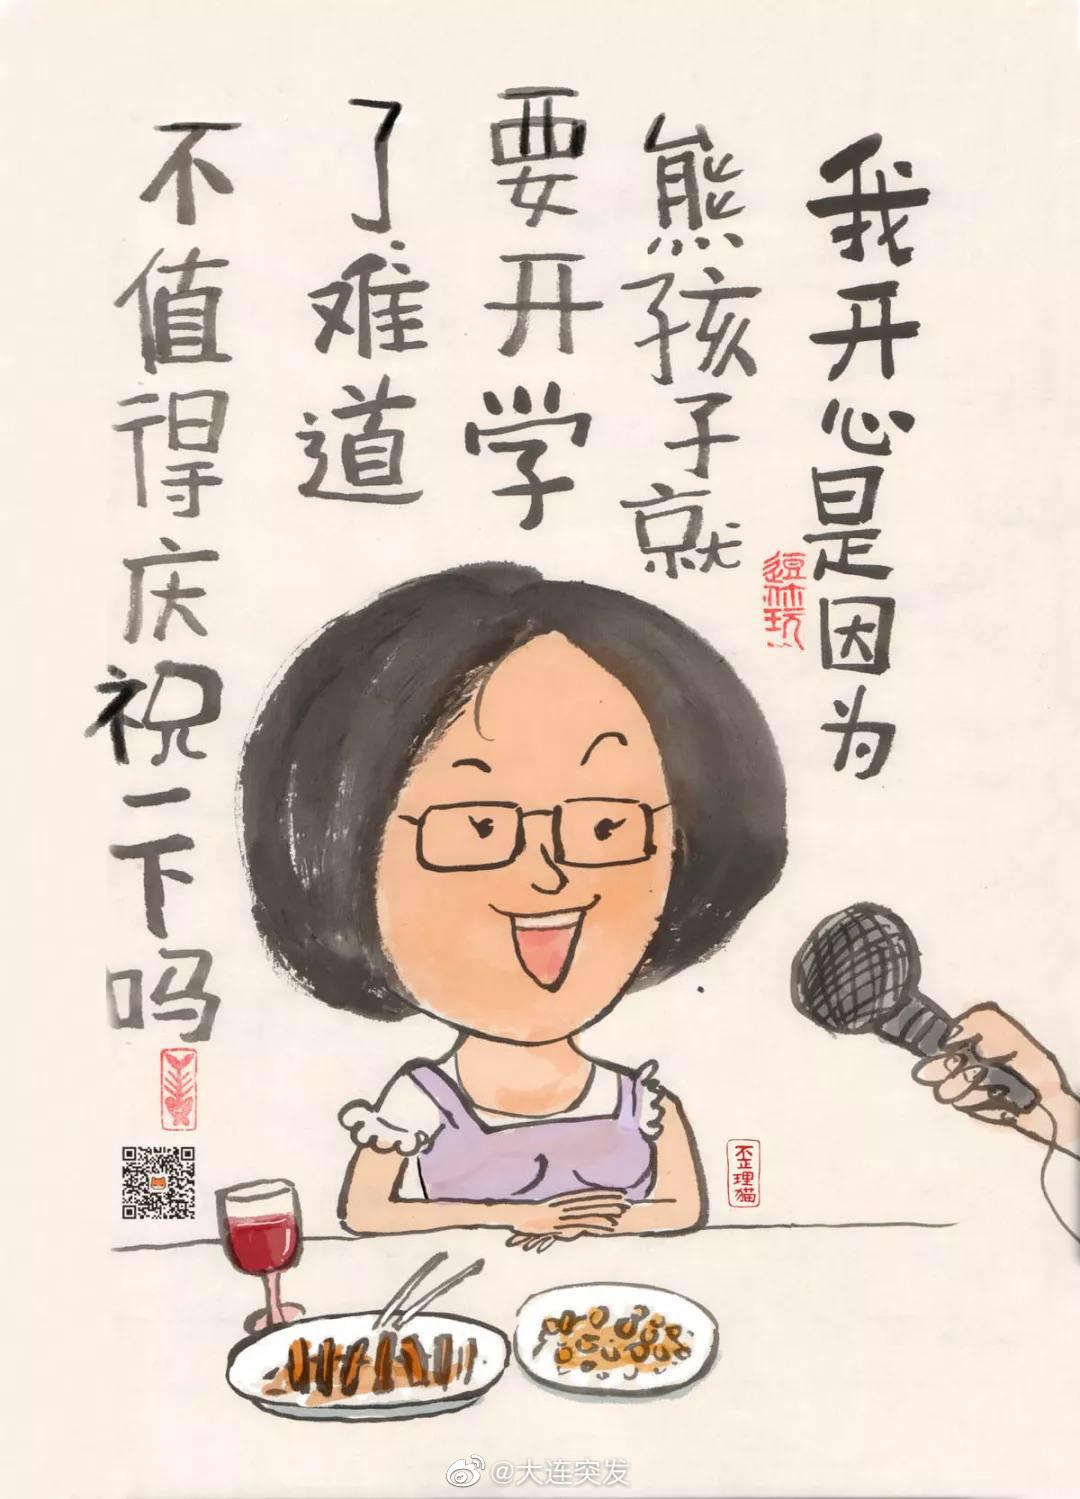 我开心是因为
熊孩子就
要开学
了难道
不值得庆祝一下吗
逗你玩
歪理猫
@大连突发